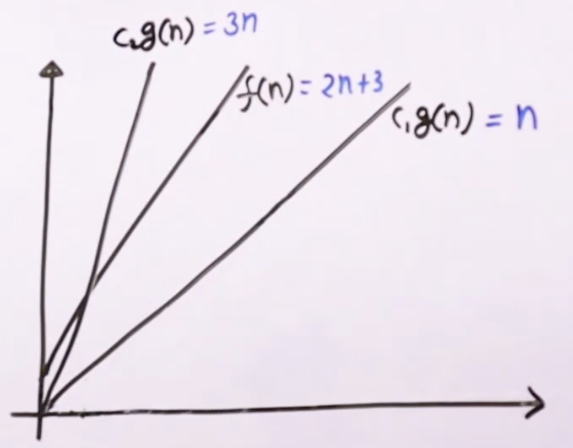 c₂g(n) = 3n
f(n) = 2n+3
c₁g(n) = n